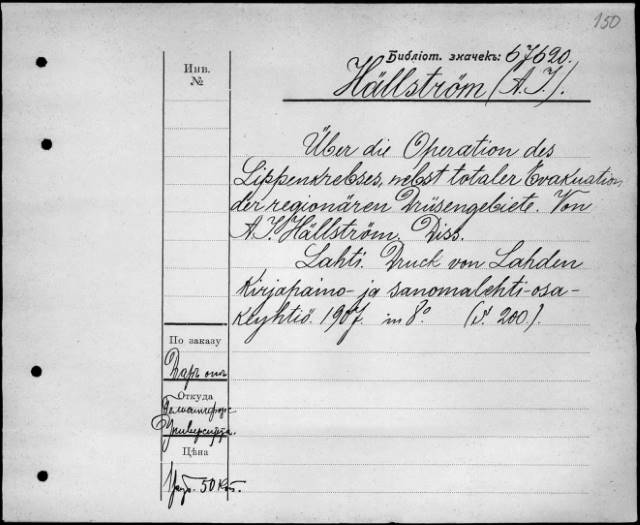 150
Библіот. значекъ: 67620.
Инв.
№
Hällström (A. I.).
Über die Operation des
Lippenkrebses, nebst totaler Evakuation
der regionären Drüsengebiete. Von
A. I. Hällström. Diss.
Lahti. Druck von Lahden
Kirjapaino- ja sanomalehti-osa-
keyhtiö. 1907. in 8° (S. 200.).
По заказу
Даръ отъ
Откуда
Гельсингфорс
Университа.
Цѣна
1 руб. 50 коп.